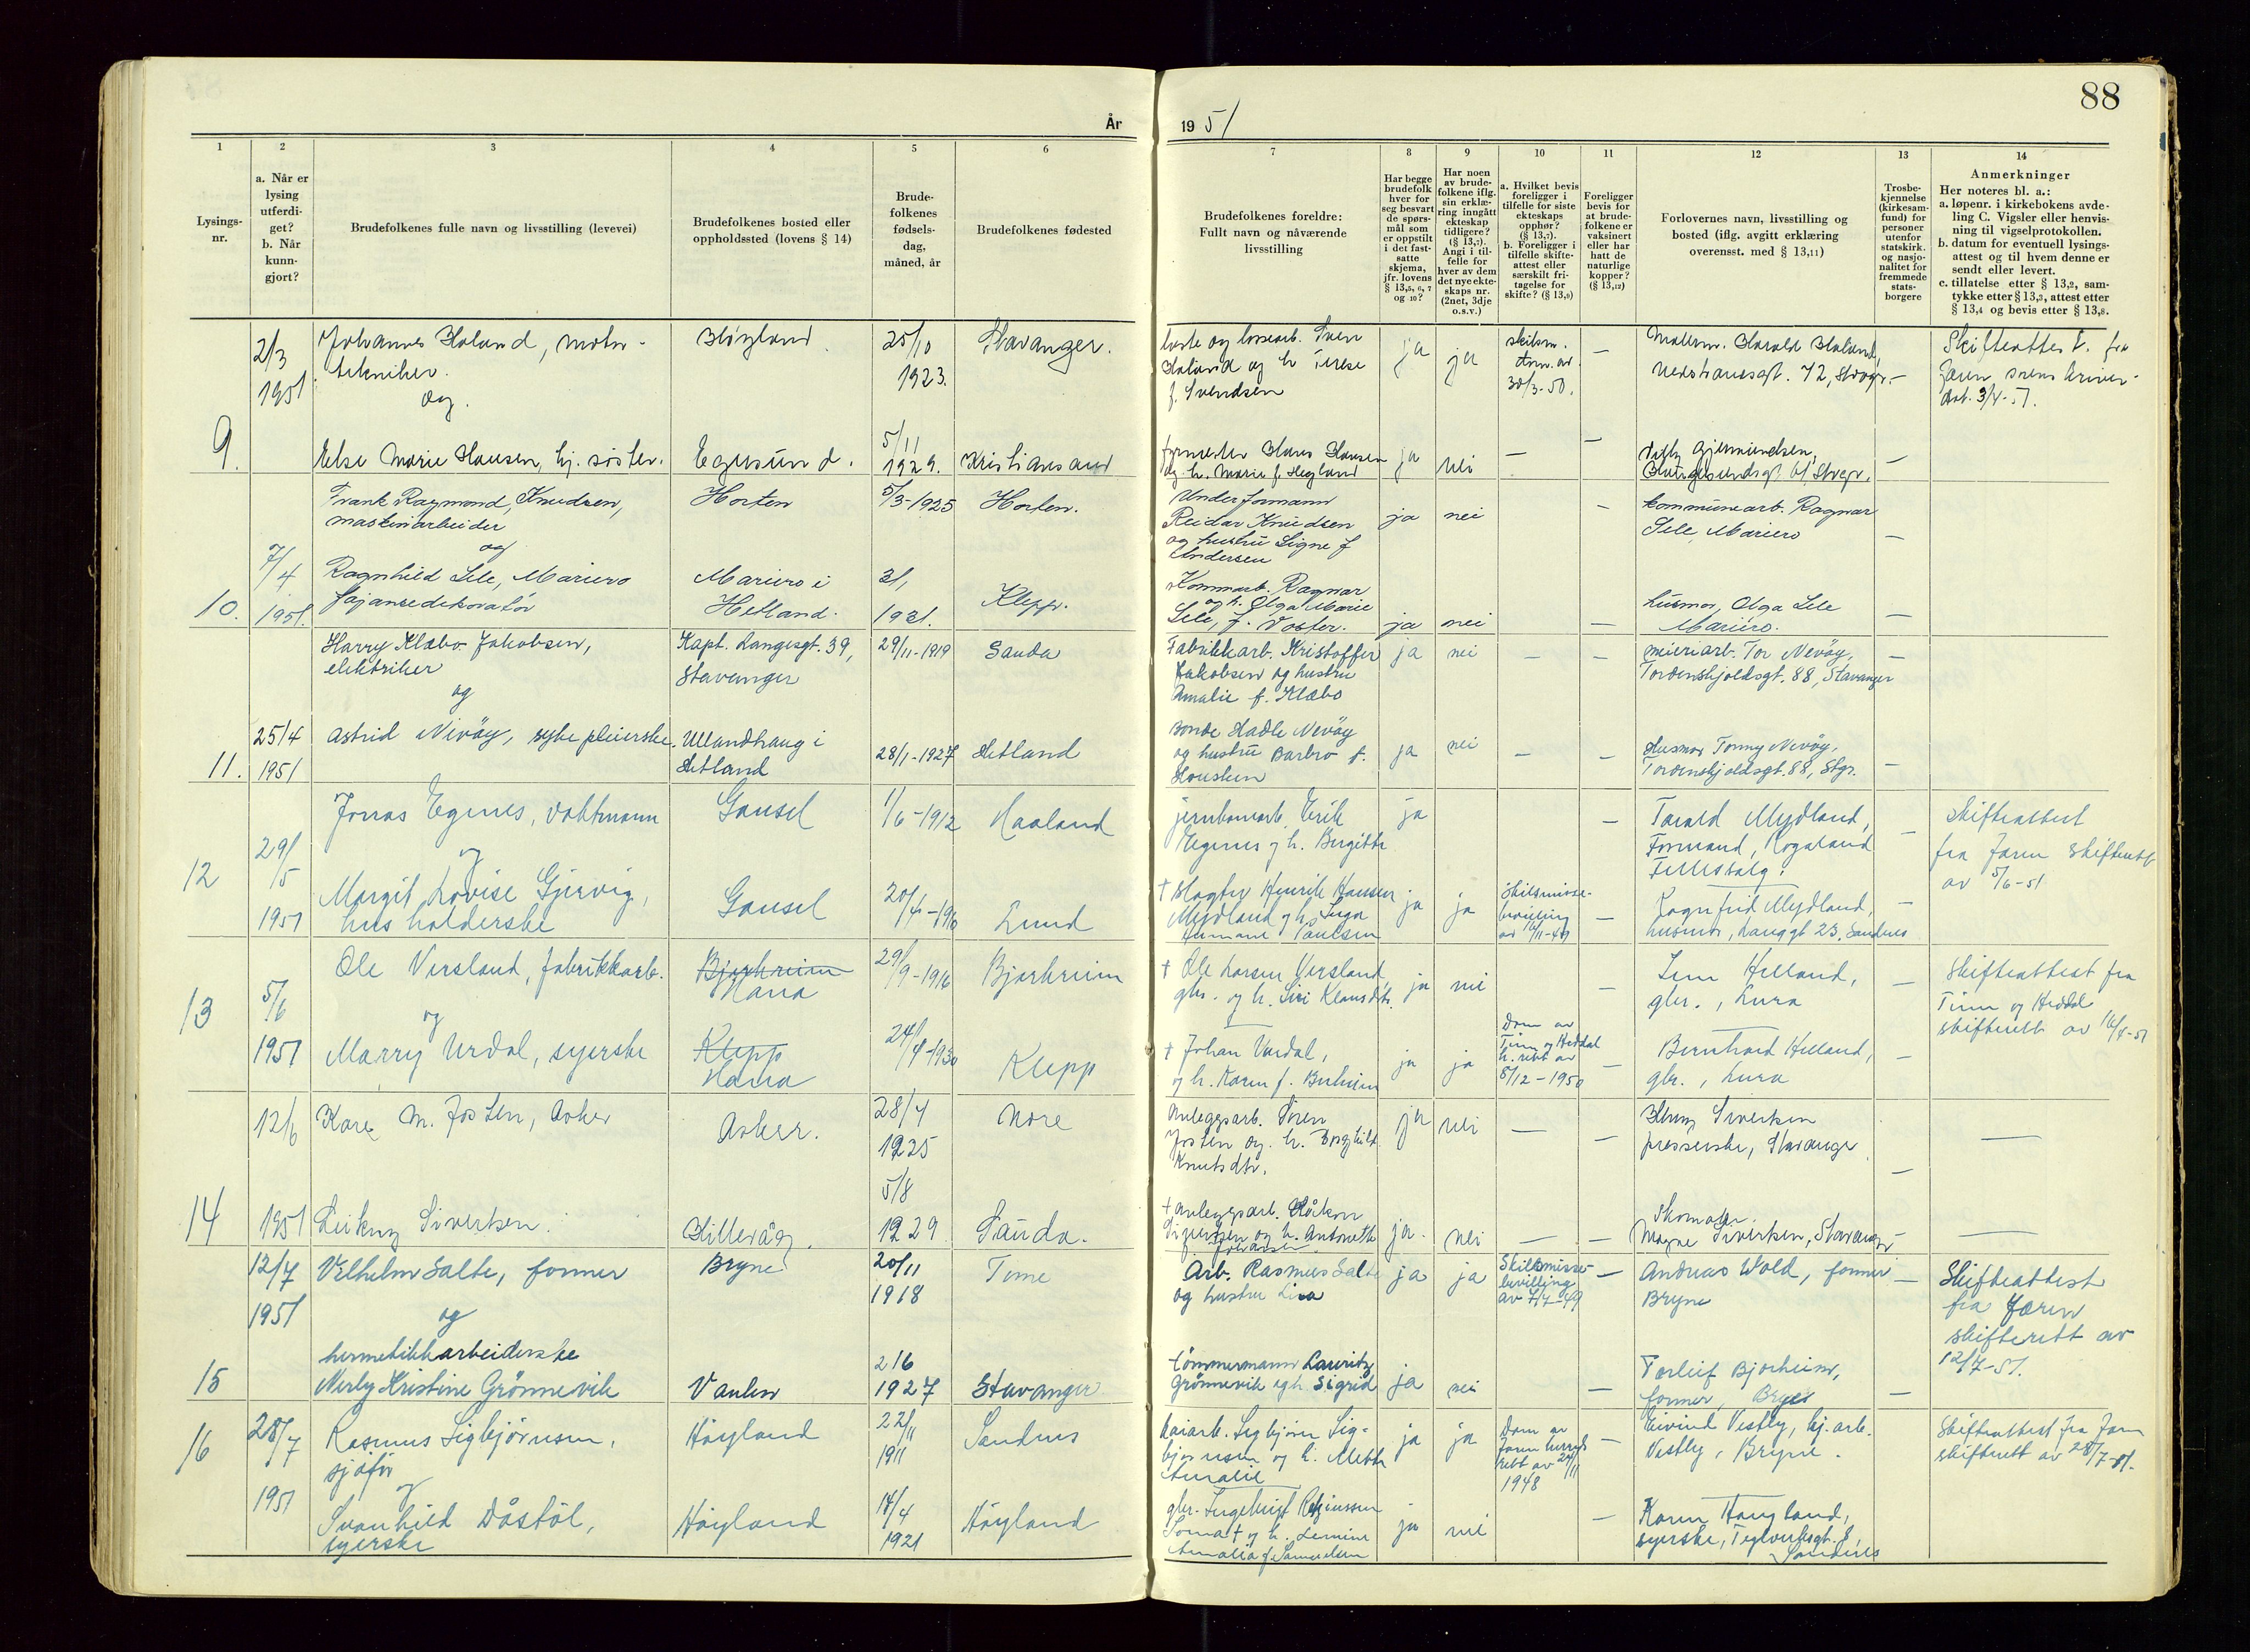 88
År
19 51
1
2
3
4
5
6
7
8
9
10
11
12
13
14
Lysings-
nr.
a. Når er
lysing
utferdi-
get?
b. Når
kunn-
gjort?
Brudefolkenes fulle navn og livsstilling (levevei)
Brudefolkenes bosted eller
oppholdssted (lovens § 14)
Brude-
folkenes
fødsels-
dag,
måned, år
Brudefolkenes fødested
Brudefolkenes foreldre:
Fullt navn og nåværende
livsstilling
Har begge
brudefolk
hver for
seg besvart
de spørs-
mål som
er oppstilt
i det fast-
satte
skjema,
jfr. lovens
§ 13,5, 6, 7
og 10?
Har noen
av brude-
folkene iflg.
sin erklæ-
ring inngått
ekteskap
tidligere?
(§ 13,7).
Angi i til-
felle for
hver av dem
det nye ekte-
skaps nr.
(2net, 3dje
o.s.v.)
a. Hvilket bevis
foreligger i
tilfelle for siste
ekteskaps
opphør?
(§ 13,7).
b. Foreligger i
tilfelle skifte-
attest eller
særskilt fri-
tagelse for
skifte? (§ 13,9)
Foreligger
bevis for
at brude-
folkene er
vaksinert
eller har
hatt de
naturlige
kopper?
(§ 13,12)
Forlovernes navn, livsstilling og
bosted (iflg. avgitt erklæring
overensst. med § 13,11)
Trosbe-
kjennelse
(kirkesam-
fund) for
personer
utenfor
statskirk.
og nasjo-
nalitet for
fremmede
stats-
borgere
Anmerkninger
Her noteres bl. a.:
a. løpenr. i kirkebokens avde-
ling C. Vigsler eller henvis-
ning til vigselprotokollen.
b. datum for eventuell lysings-
attest og til hvem denne er
sendt eller levert.
c. tillatelse etter § 13,2, sam-
tykke etter § 13,3, attest etter
§ 13,4 og bevis etter § 13,8.
9.
2/3
1951
Johannes Haland, motor-
tekniker.
og
Høyland
25/10
1923.
Stavanger.
laste og lossearb. Sven
Haland og h Terese
f. Svendsen
ja
ja
skilsm.
av
30/3-50.
–
Harald Haland,
72, Stvgr.
–
Skifteattest fra
Jæren sorenskriver-
3/4-51.
Else Marie Hansen, hj. søster.
Egersund.
5/11
1929.
Kristiansand
fyrmester Hans Hansen
og h. Marie f. Hegland
ja
nei
–
–
Gjermundsen,
61 Stvgr.
–
10.
7/4
1951.
Frank Raymond Knudsen,
maskinarbeider
og
Horten
5/3-1925
Horten.
Underformann
Reidar Knudsen
og hustru Signe f
Andersen
ja
nei
–
kommunearb. Ragnar
Lele, Mariero
–
Ragnhild Lele, Mariero
fajansedekoratör
Mariero i
Hetland.
31,
1931.
Klepp.
Kommarb. Ragnar
og h. Olga Marie
Lele, f. Voster.
ja
nei
–
husmor, Olga Lele
Mariero.
–
11.
25/4
1951
Harry Klæbo Jakobsen,
elektriker
og
Kapt. Langesgt. 39,
Stavanger
29/11-1919
Sauda
Fabrikkarb. Kristoffer
Jakobsen og hustru
Amalie f. Klæbo
ja
nei
–
–
meieriarb. Tor Nevöy,
Tordenskjoldsgt. 88, Stavanger
–
Astrid Nevöy, sykepleierske.
Ullandhaug i
Hetland
28/1-1927
Hetland
Bonde Hadle Nevöy
og hustru Barbro f.
ja
nei
–
–
Husmor Tonny Nevöy,
Tordenskjoldsgt. 88, Stgr.
–
12
29/5
1951
Jonas Egenes, vaktmann
og
Gausel
1/6-1912
Haaland
jernbanearb. Erik
Egenes og h. Birgitte
ja
–
Torald Mydland,
Formand, Rogaland
Fellessalg.
–
Skifteattest
fra Jæren skifterett
av 5/6-51
Margit Lovise Gjervig,
husholderske
Gausel
Lund
† slagter Henrik Hansen
Mydland og h. Inga
ja
ja
Skilsmisse-
bevilling
–
Ragnfrid Mydland,
husmor, Langgt 23, Sandnes
–
13
5/6
1951
Ole Versland, fabrikkarb.
og
Bjerkreim
Hana
29/9-1916
Bjerkreim
† Ole Larsen Versland,
gbr. og h. Siri Klausdtr.
ja
nei
–
Helland,
gbr., Lura
–
Skifteattest fra
Tinn og Heddal
skifterett av
Marry Urdal, syerske
Klepp
Hana
24/4-1930
Klepp
† Johan Urdal,
og h. Karen f.
ja
ja
Dom av
Tinn og Heddal
h. rett av
8/12-1950
–
Bernhard Helland,
gbr., Lura
–
14
12/6
1951
Kåre M. Josten, Asker
Asker.
28/4
1925
Nore
Anleggsarb. Sören
Josten og h. Borghild
Knutsdtr.
ja
nei
–
–
Sivertsen
presserske, Stavanger
–
–
Leikny Sivertsen
Hillevåg
5/8
1929
Sauda.
† anleggsarb. Håkon
Sivertsen og h. Antonette
Johansen
ja.
nei
–
–
Skomaker.
Magne Sivertsen, Stavanger
–
15
12/7
1951
Vilhelm Salte, former
og
Bryne
20/11
1918
Time
Arb. Rasmus Salte
og hustru Lina
ja
ja
Skilsmisse-
bevilling
av 7/7-49
–
Andreas Wold, former
Bryne
–
Skifteattest
fra Jæren
skifterett av
12/7-51.
hermetikkarbeiderske
Nerly Kristine Grönnevik
Vaulen
2/6
1927
Stavanger
tömmermann Lauritz
Grönnevik og h. Sigrid
ja
nei
–
Torleif Bjorheim,
former, Bryne
–
16
28/7
1951
Rasmus Sigbjörnsen,
sjåför
og
Höyland
22/11
1911
Sandnes
kaiarb. Sigbjörn Sig-
björnsen og h. Mette
Amalie
ja
ja
Dom av
Jæren herreds
rett av 24/11
1948
–
Eivind Vestly, hj. arb.
Vestly, Bryne.
Skifteattest fra Jæren
skifterett av 28/7-51.
Svanhild Dåstöl,
syerske
Höyland
14/4
1921
Höyland
gbr. Ingebrigt
og h.
Amalia f. Samuelsen
ja
nei
–
Karen Haugland,
syerske, Teglverksgt. 8,
Sandnes